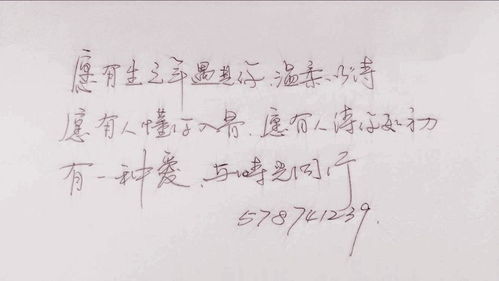 愿有生之年遇见你,温柔以待
愿有人懂你入骨.愿有人待你如初
有一种爱,与时光同行
578741239.